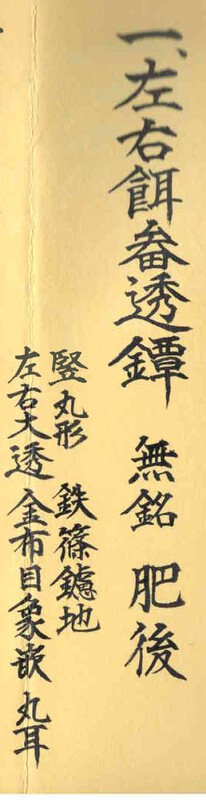 一、左右餌畚透鐔 無銘 肥後
竪丸形 鉄篠鑢地
左右大透 金布目象嵌 丸耳